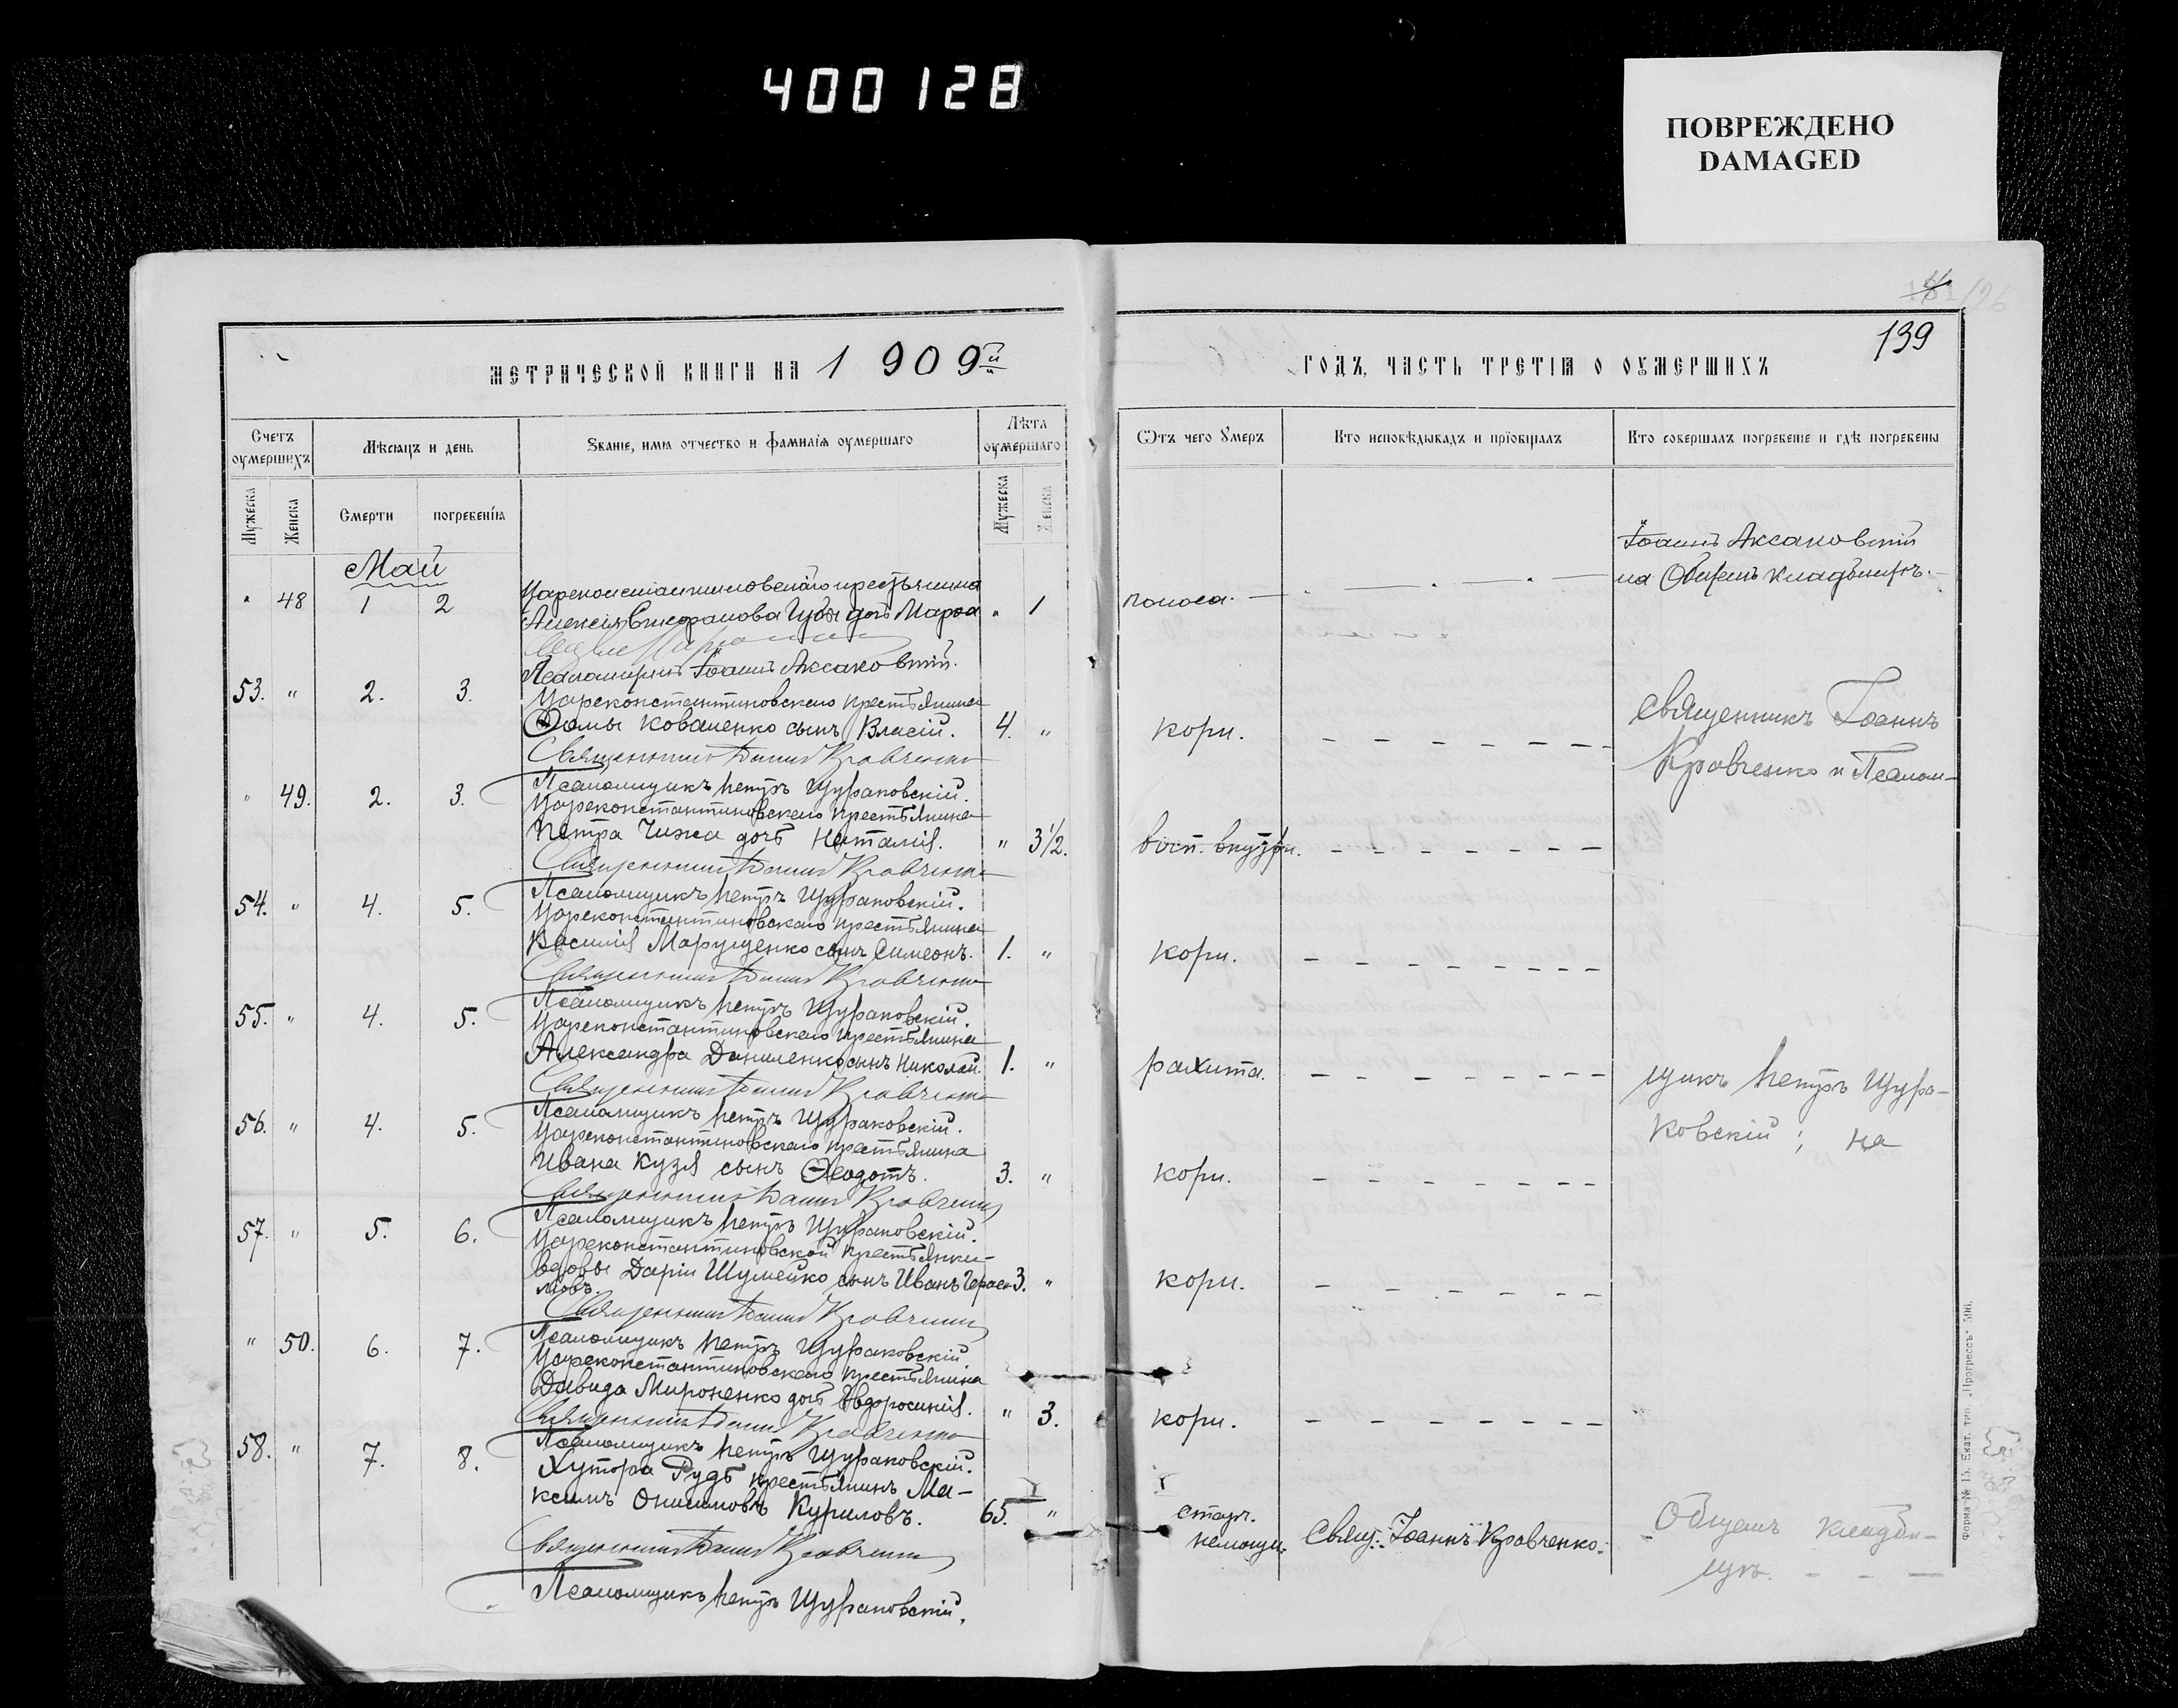 400128
ПОВРЕЖДЕНО
DAMAGED
139
МЕТРИЧЕСКОЙ КНИГИ НА 1909й
ГОДЪ, ЧАСТЬ ТРЕТІЯ О ОУМЕРШИХЪ
Счетъ оумершихъ
Мѣсяцъ и день
Званіе, имя отчество и фамилія оумершаго
Лѣта оумершаго
Отъ чего умеръ
Кто исповѣдывалъ и пріобщалъ
Кто совершалъ погребеніе и гдѣ погребены
Мужеска
Женска
Смерти
погребенія
Мужеска
Женска
Май
Іоаннъ Аксаковскій
на Общемъ кладбищѣ.
" 48 1 2 Цареконстантиновскаго крестьянина
Алексія Губы дочь Марѳа " 1 поноса.
Псаломщикъ Іоаннъ Аксаковскій.
53. " 2. 3. Цареконстантиновскаго крестьянина
Ѳомы Коваленко сынъ Власій. 4. " кори.
Священникъ Іоаннъ Кравченко
Священникъ Іоаннъ
Кравченко и Псалом-
Псаломщикъ Петръ Щураковскій.
" 49. 2. 3. Цареконстантиновскаго крестьянина
Петра Чижа дочь Наталія. " 3½. восп. внутрн.
Священникъ Іоаннъ Кравченко
Псаломщикъ Петръ Щураковскій.
54. " 4. 5. Цареконстантиновскаго крестьянина
Василія Марущенко сынъ Симеонъ. 1. " кори.
Священникъ Іоаннъ Кравченко
Псаломщикъ Петръ Щураковскій.
55. " 4. 5. Цареконстантиновскаго крестьянина
Александра Даниленко сынъ Николай. 1. " рахита.
Священникъ Іоаннъ Кравченко
щикъ Петръ Щура-
ковскій; на
Псаломщикъ Петръ Щураковскій.
56. " 4. 5. Цареконстантиновскаго крестьянина
Ивана Кузя сынъ Ѳеодотъ. 3. " кори.
Священникъ Іоаннъ Кравченко
Псаломщикъ Петръ Щураковскій.
57. " 5. 6. Цареконстантиновской крестьянки
вдовы Даріи Шумейко сынъ Иванъ Гераси- 3. " кори.
мовъ.
Священникъ Іоаннъ Кравченко
Псаломщикъ Петръ Щураковскій
" 50. 6. 7. Цареконстантиновскаго крестьянина
Давида Мироненко дочь Евдросинія. " 3. кори.
Священникъ Іоаннъ Кравченко
Псаломщикъ Петръ Щураковскій.
58. " 7. 8. Хутора Рудь крестьянинъ Ма-
ксимъ Онисимовъ Куриловъ. 65. " старч.
немощи. Свящ. Іоаннъ Кравченко.
Общемъ кладби-
щѣ.
Священникъ Іоаннъ Кравченко
Псаломщикъ Петръ Щураковскій.
Форма № 15. Екат. тип. „Прогрессъ" 596.